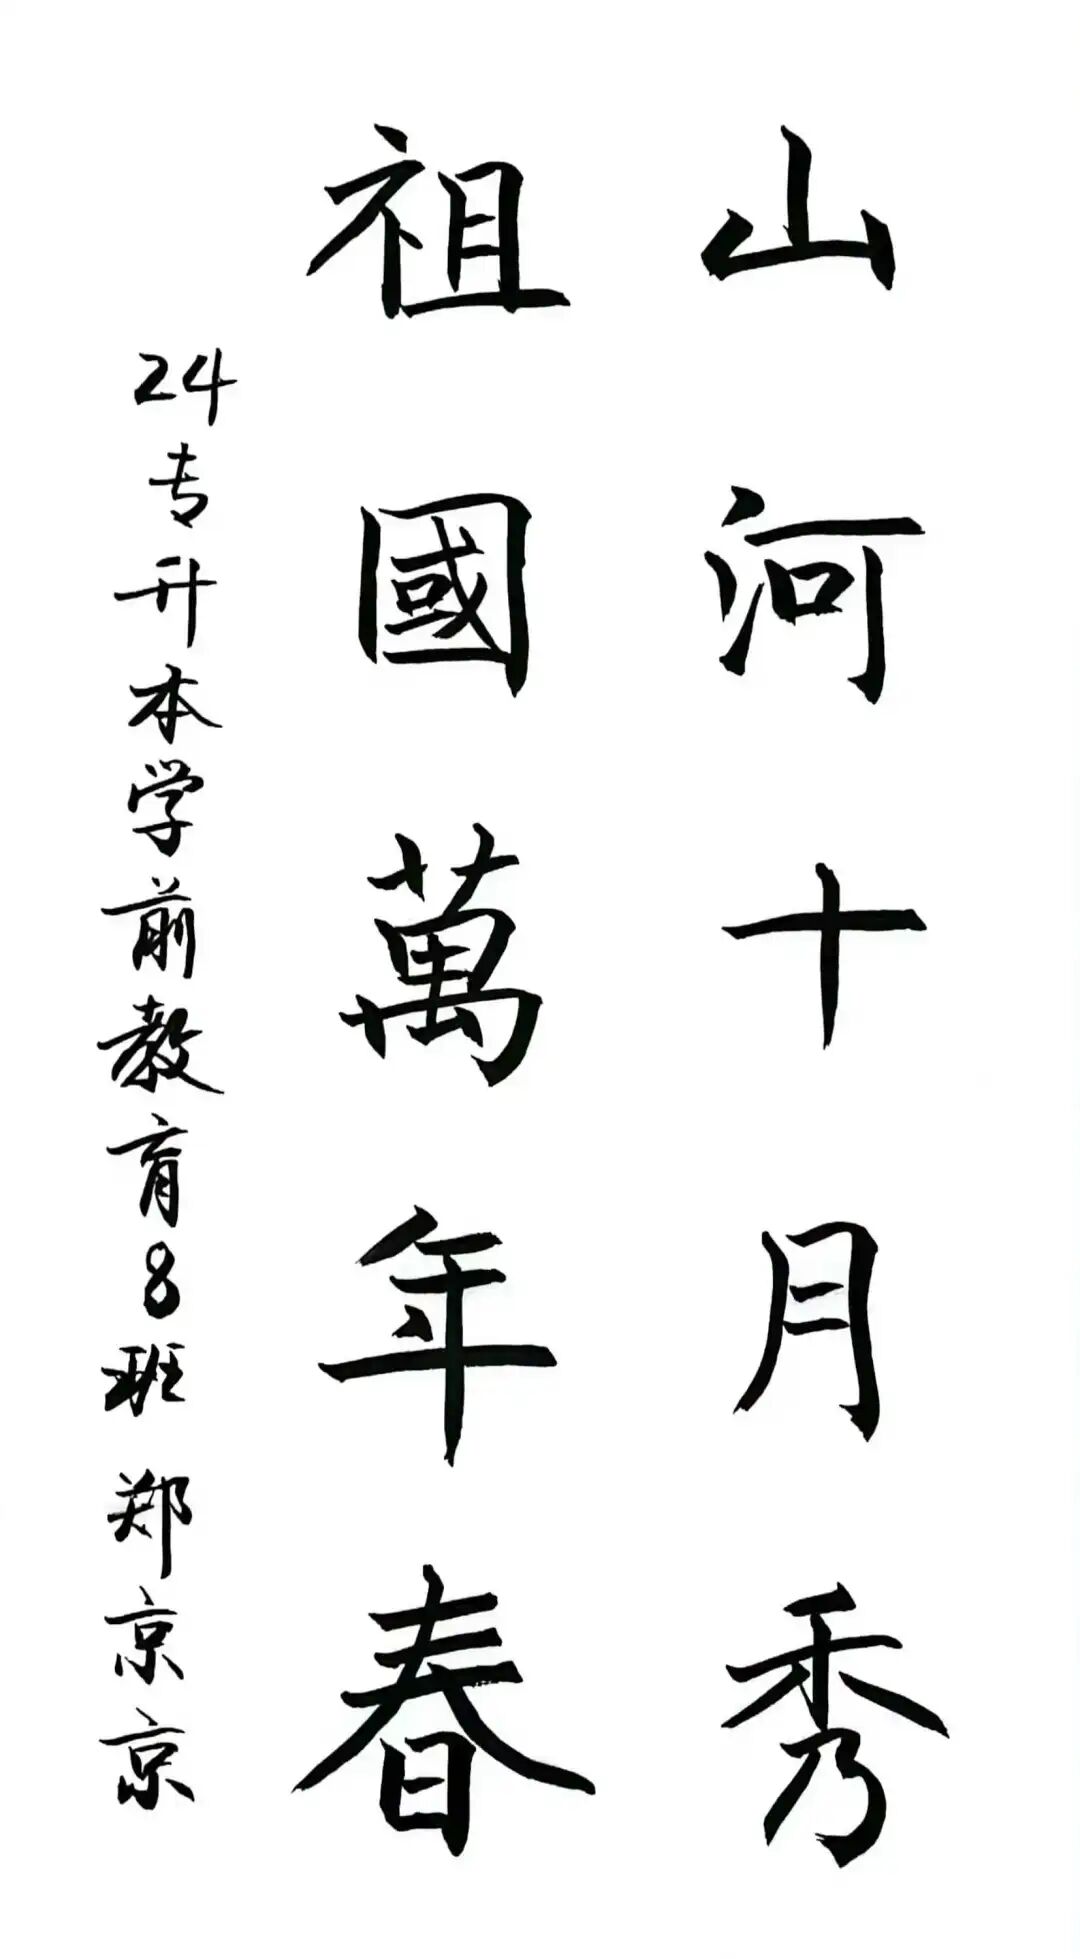 山河十月秀
祖國萬年春
24专升本学前教育8班 郑京京